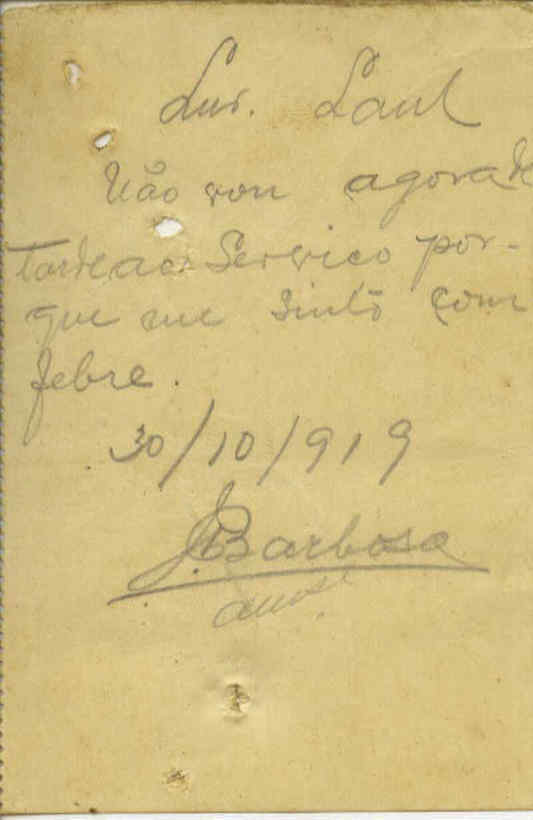 Snr. Saul
Não vou agora de
tarde ao Serviço por-
que me sinto com
febre.
30/10/919
J. Barbosa